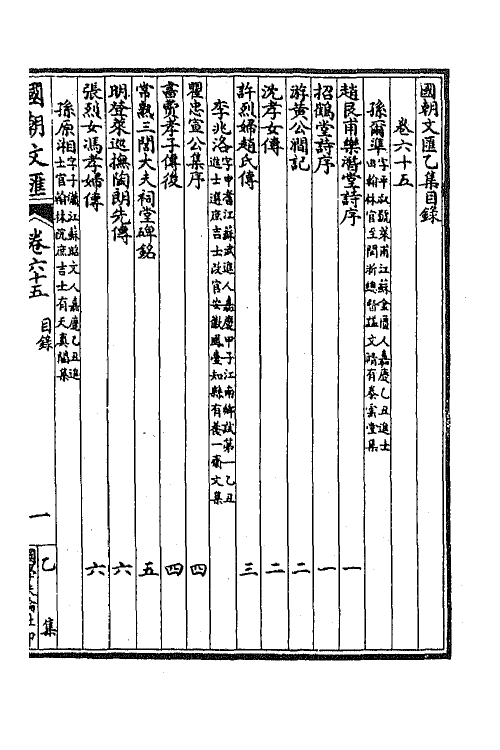 國朝文匯乙集目錄
卷六十五
孫爾準字平叔號萊甫江蘇金匱人嘉慶乙丑進士
由翰林官至閩浙總督諡文靖有泰雲堂集
趙艮甫樂潛堂詩序 一
招鶴堂詩序 一
游黃公澗記 二
沈孝女傳 二
許烈婦趙氏傳 三
李兆洛字申耆江蘇武進人嘉慶甲子江南鄉試第一乙丑
進士選庶吉士改官安徽鳳臺知縣有養一齋文集
瞿忠宣公集序 四
書賈孝子傳後 四
常熟三閭大夫祠堂碑銘 五
明登萊巡撫陶朗先傳 六
張烈女馮孝婦傳 六
孫原湘字子瀟江蘇昭文人嘉慶乙丑進
士官翰林院庶吉士有天真閣集
國朝文匯 卷六十五 目錄 一 乙集